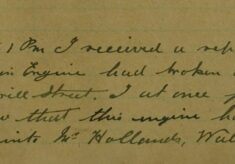 1 Pm I received a rep
Engine had broken
Street. I at once
that this engine ha
into Mr Hollands, Wal